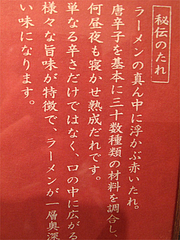 秘伝のたれ
ラーメンの真ん中に浮かぶ赤いたれ。
唐辛子を基本に三十数種類の材料を調合し、
何昼夜も寝かせ熟成だれです。
単なる辛さだけではなく、口の中に広がる
様々な旨味が特徴で、ラーメンが一層奥深
い味になります。